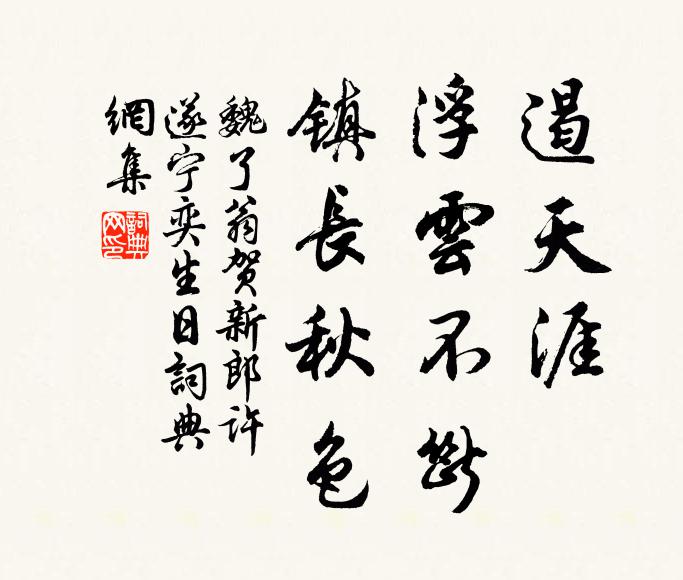 遏天涯
浮雲不斷
鎮長秋色
魏了翁賀新郎許
遂宁奕生日詞典
網集
詞典网印